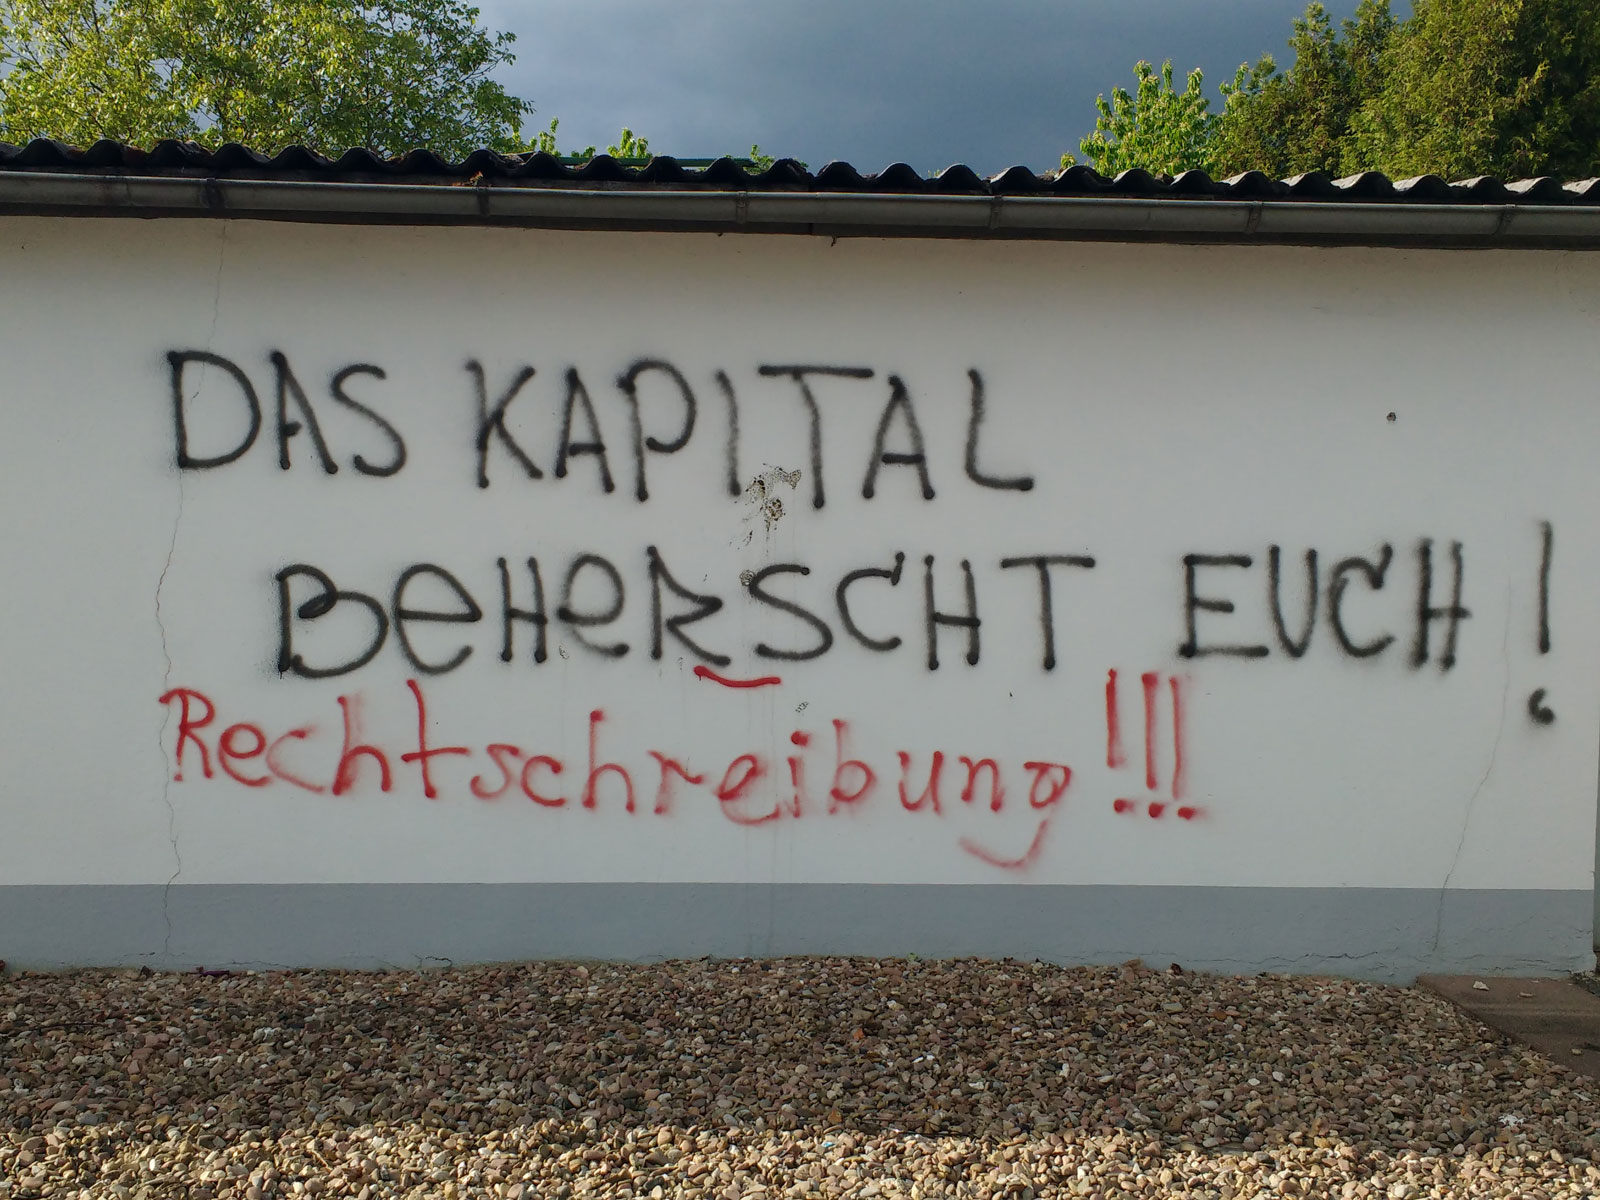 DAS KAPITAL
BeHeRSCHT EUCH!
Rechtschreibung!!!